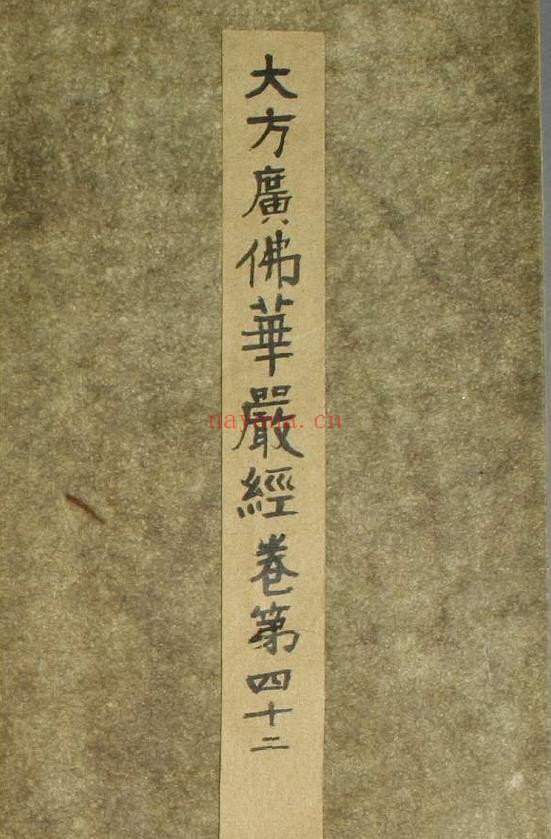 大方廣佛華嚴經卷第四十二
nayona.cn